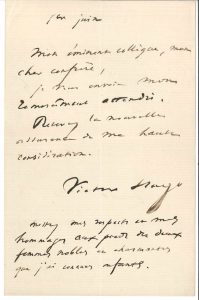 1er juin
Mon éminent collègue, mon
cher confrère,
je vous envoie mon
remerciement attendri.
Recevez la nouvelle
assurance de ma haute
considération.
Victor Hugo
mettez mes respects et mes
hommages aux pieds des deux
femmes nobles et charmantes
que j'ai connues enfants.